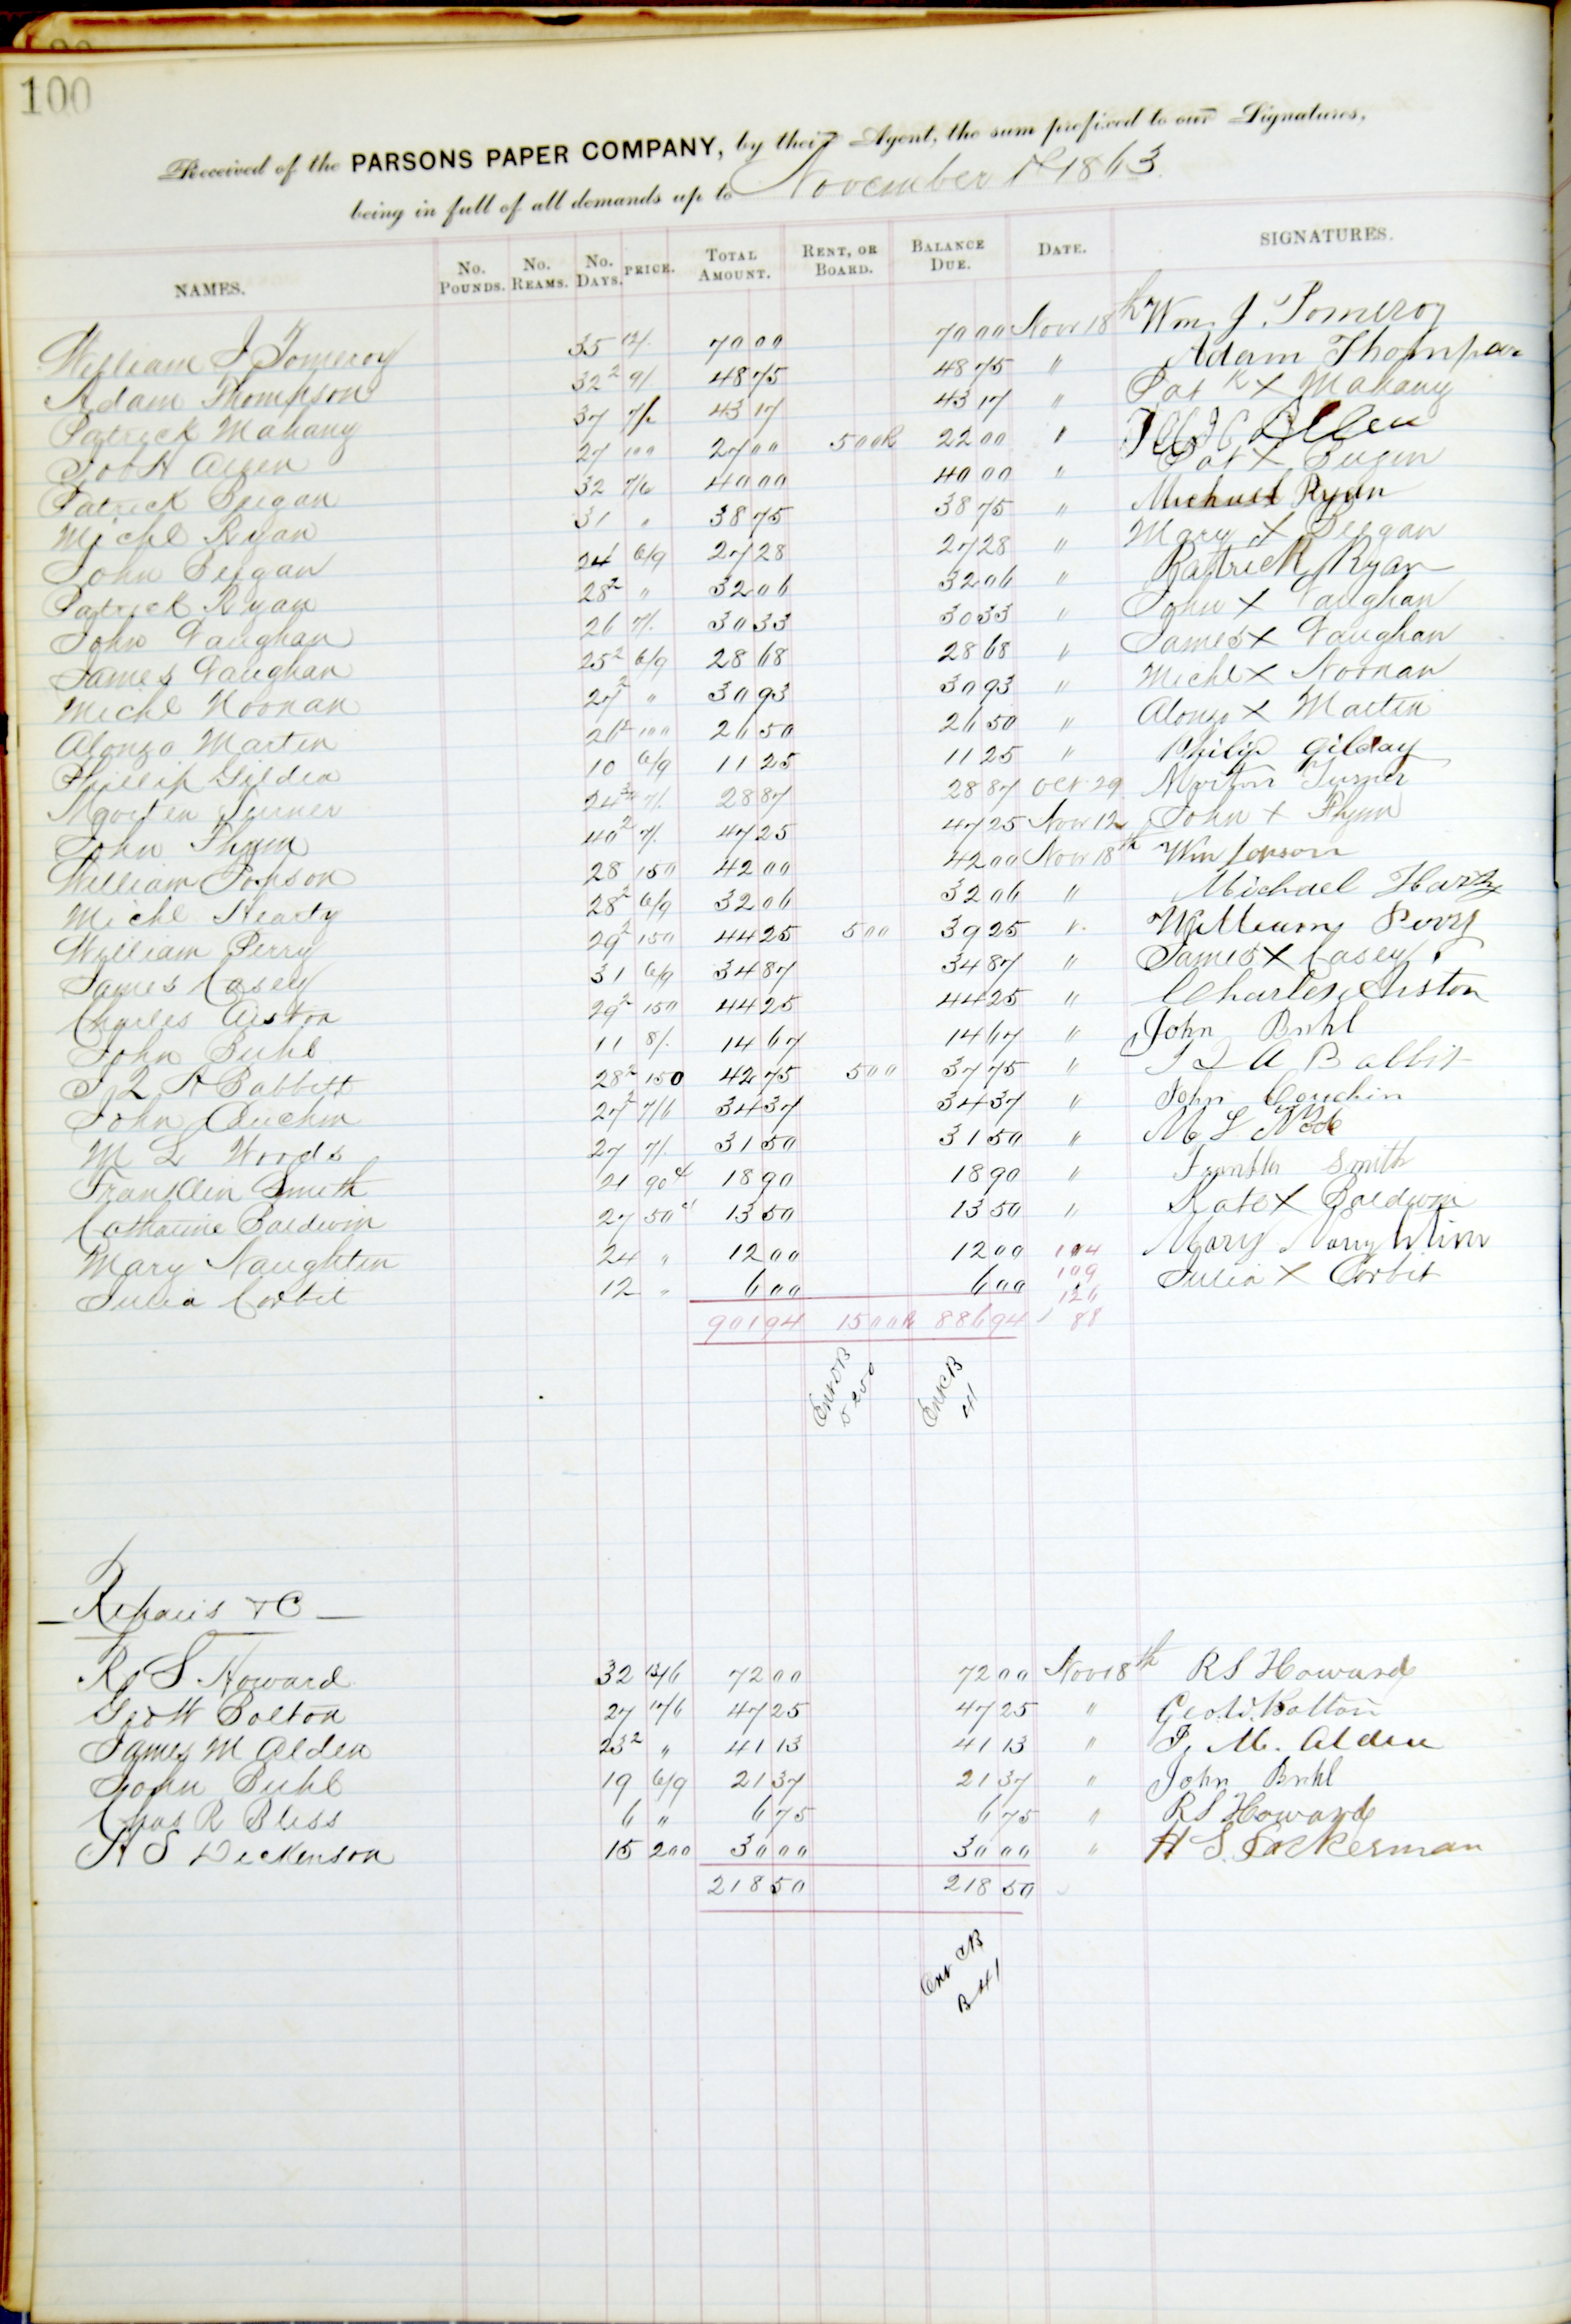 100
Received of the PARSONS PAPER COMPANY, by their Agent, the sum prefixed to our Signatures,
being in full of all demands up to November 1st 1863.
NAMES. No. Pounds. No. Reams. No. Days. PRICE. Total Amount. Rent, or Board. Balance Due. Date. SIGNATURES.
William J Pomeroy 35 12/. 70 00 70 00 Nov 18th Wm. J. Pomeroy
Adam Thompson 32 2 9/. 48 75 48 75 " Adam Thompson
Patrick Mahany 37 7/. 43 17 43 17 " Pat k X Mahany
Job H Allen 27 100 27 00 5 00 R 22 00 " Allen
Patrick Beegan 32 7/6 40 00 40 00 " Pat X
Michl Ryan 31 " 38 75 38 75 " Michael Ryan
John Beegan 24 6/9 27 28 27 28 " Mary X Beegan
Patrick Ryan 28 2 " 32 06 32 06 " Patrick Ryan
John Vaughan 26 7/. 30 33 30 33 " John X Vaughan
James Vaughan 25 2 6/9 28 68 28 68 " James X Vaughan
Michl Noonan 27 2 " 30 93 30 93 " Michl X Noonan
Alonzo Martin 26 2 100 26 50 26 50 " Alonzo X Martin
Phillip Gildea 10 6/9 11 25 11 25 " Philip Gilday
Morten Turner 24 3 7/. 28 87 28 87 Oct 29 Morton Turner
John Flynn 40 2 7/. 47 25 47 25 Nov 12 John X Flynn
William Jopson 28 150 42 00 42 00 Nov 18th Wm Jopson
Michl Hearty 28 2 6/9 32 06 32 06 " Michael Harty
William Perry 29 2 150 44 25 5 00 39 25 " William Perry
James Casey 31 6/9 34 87 34 87 " James X Casey
Charles Aiston 29 2 150 44 25 44 25 " Charles Aiston
John Buhl 11 8/. 14 67 14 67 " John Buhl
J Q A Babbett 28 2 150 42 75 5 00 37 75 " J Q A Babbit
John Couchin 27 2 7/6 34 37 34 37 " John Couchin
M L Woods 27 7/. 31 50 31 50 " M L
Franklin Smith 21 90 ¢ 18 90 18 90 " Franklin Smith
Catharine Baldwin 27 50 ¢ 13 50 13 50 " Kate X Baldwin
Mary Naughten 24 " 12 00 12 00 104 Mary
Julia Corbit 12 " 6 00 6 00 109 Julia X Corbit
126
901 94 15 00 R 886 94 88
Ent CB
41
Repairs & C
R S Howard 32 13/6 72 00 72 00 Nov 18th R S Howard
Geo W Bolton 27 10/6 47 25 47 25 " Geo. W. Bolton
James M Alden 23 2 " 41 13 41 13 " J. M. Alden
John Buhl 19 6/9 21 37 21 37 " John Buhl
Chas R Bliss 6 " 6 75 6 75 " R S Howard
H S Dickenson 15 200 30 00 30 00 " H S.
218 50 218 50
Ent CB
B 41